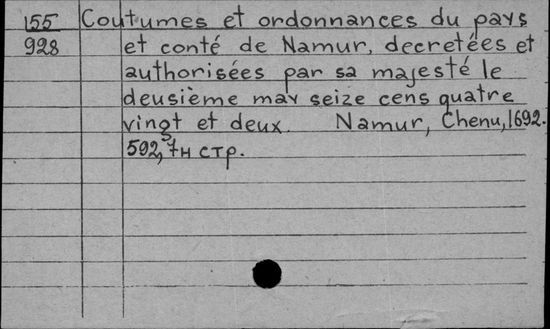 155 Coutumes et ordonnances du pays
928 et conté de Namur, decretées et
authorisées par sa majesté le
deusième may seize cens quatre
vingt et deux. Namur, Chenu, 1692.
592, 7н стр.